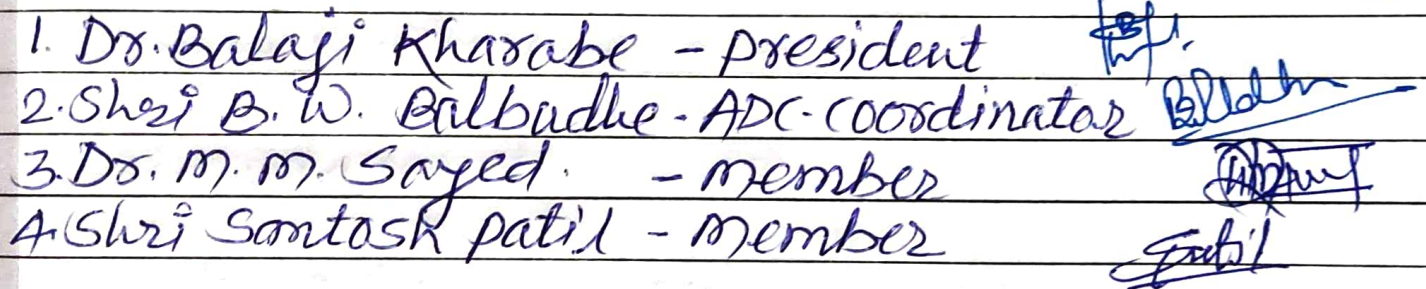 1. Dr. Balaji Kharabe - president
2. Shri B. W. Bilbudhe - ADC-coordinator
3. Dr. M. M. Sayed. - member
4. Shri Santosh patil - member